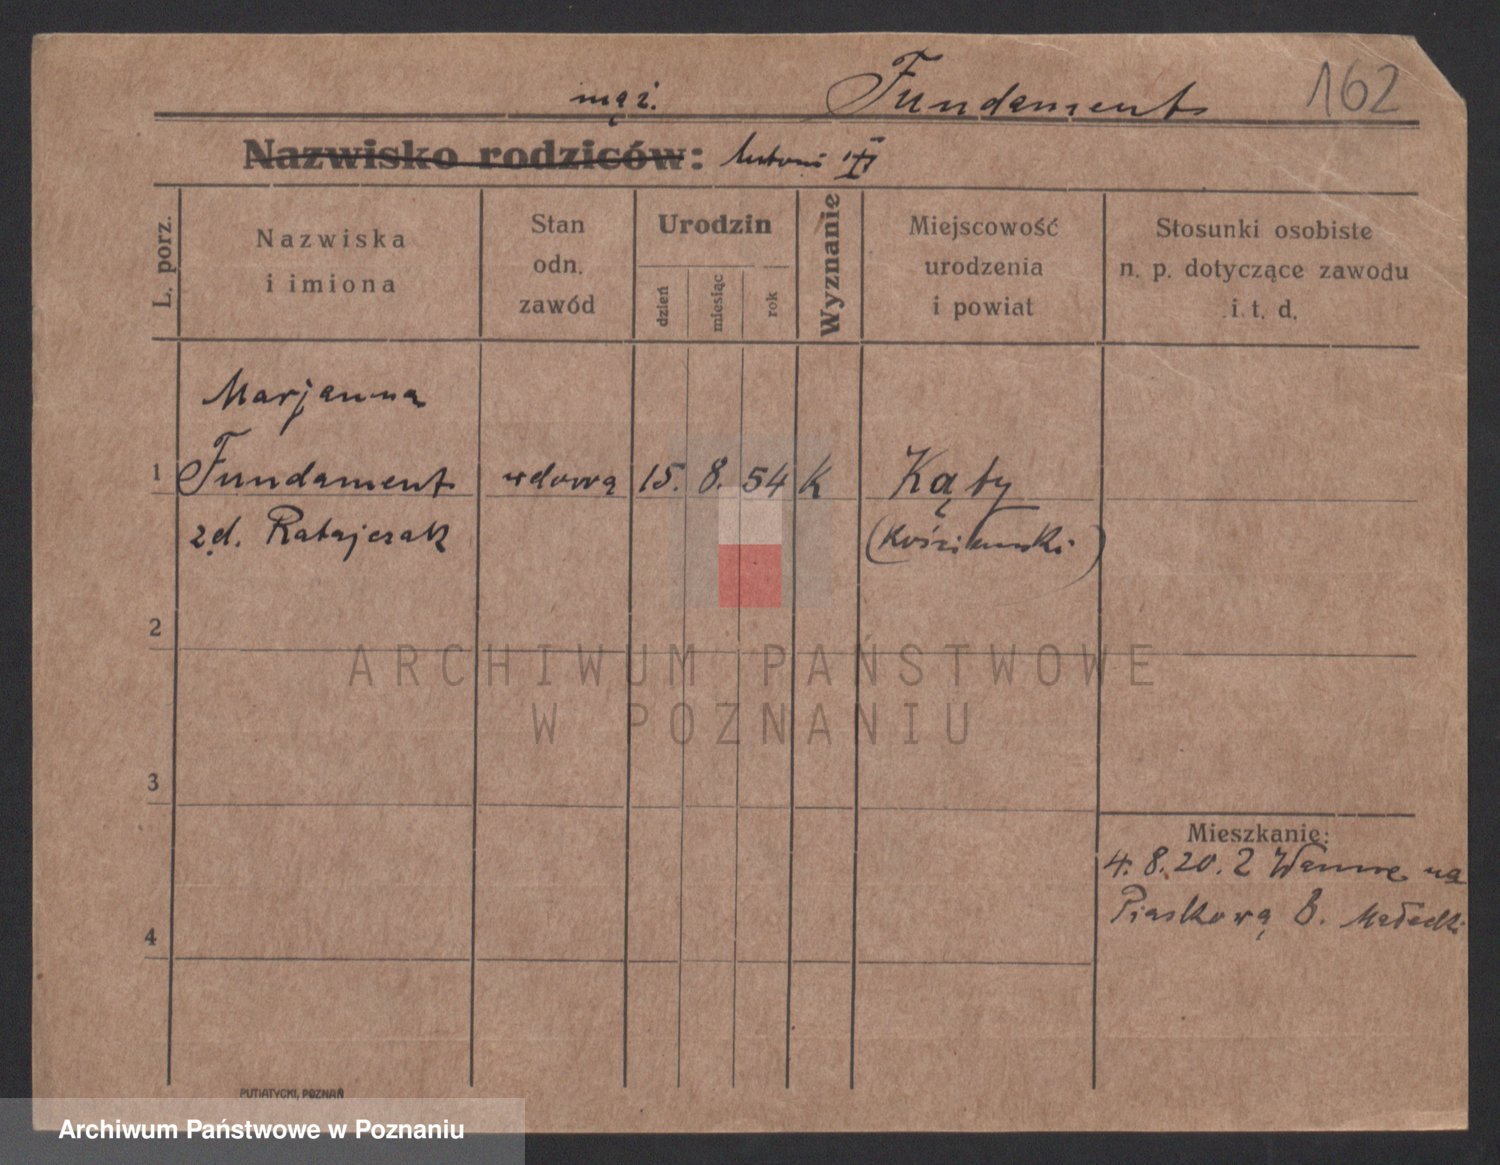 mąż. Fundament 162
Nazwisko rodziców: Antoni
L. porz.
Nazwiska
i imiona
Stan
odn.
zawód
Urodzin
dzień
miesiąc
rok
Wyznanie
Miejscowość
urodzenia
i powiat
Stosunki osobiste
n. p. dotyczące zawodu
i. t. d.
Marjanna
1 Fundament wdowa 15. 8. 54 K Kąty
zd. Ratajczak (Kościański)
2
ARCHIWUM PAŃSTWOWE
W POZNANIU
3
Mieszkanie:
4. 8. 20. Z na
Piaskową 8. Małecki
4
PUTIATYCKI, POZNAŃ
Archiwum Państwowe w Poznaniu